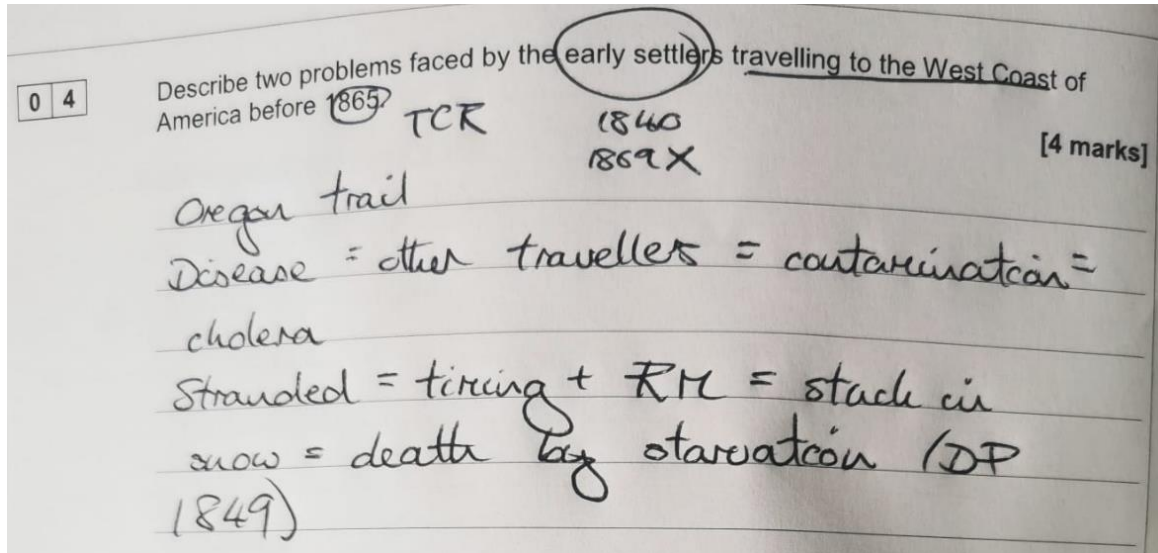 0 4
Describe two problems faced by the early settlers travelling to the West Coast of
America before 1865?
[4 marks]
TCR
1840
1869 X
Oregon trail
Disease = other travellers = contamination =
cholera
Stranded = timing + RM = stuck in
snow = death by starvation (DP
1849)